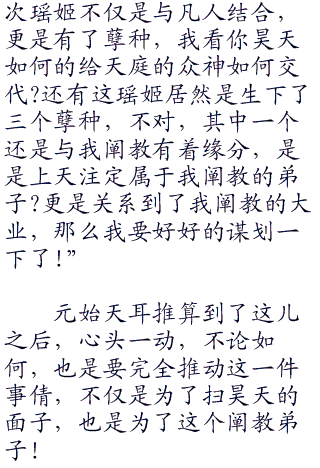 次瑶姬不仅是与凡人结合，
更是有了孽种，我看你昊天
如何的给天庭的众神如何交
代?还有这瑶姬居然是生下了
三个孽种，不对，其中一个
还是与我阐教有着缘分，是
是上天注定属于我阐教的弟
子?更是关系到了我阐教的大
业，那么我要好好的谋划一
下了!”
元始天耳推算到了这儿
之后，心头一动，不论如
何，也是要完全推动这一件
事情，不仅是为了扫昊天的
面子，也是为了这个阐教弟
子!